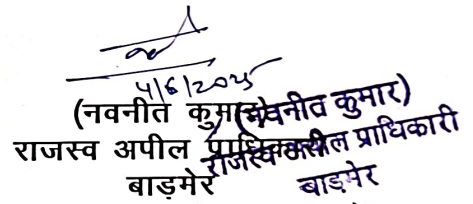 4/6/2025
(नवनीत कुमार)
राजस्व अपील प्राधिकारी
बाड़मेर
(नवनीत कुमार)
राजस्व अपील प्राधिकारी
बाड़मेर